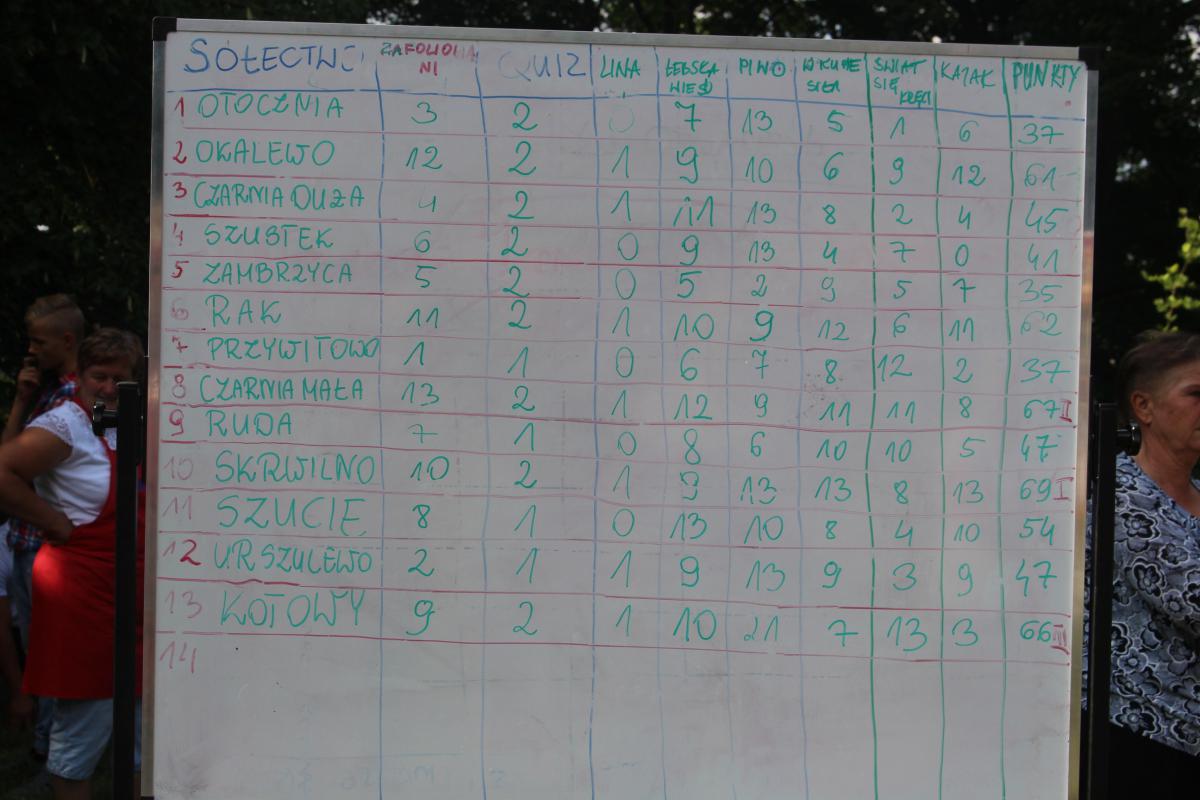 SOŁECTWO ZAFOLIOWANI QUIZ LINA ŁEBSKA WIEŚ PIWO W KUPIE SIŁA ŚWIAT SIĘ KRĘCI KAJAK PUNKTY
1 OTOCZNIA 3 2 0 7 13 5 1 6 37
2 OKALEWO 12 2 1 9 10 6 9 12 61
3 CZARNIA DUŻA 4 2 1 11 13 8 2 4 45
4 SZUSTEK 6 2 0 9 13 4 7 0 41
5 ZAMBRZYCA 5 2 0 5 2 9 5 7 35
6 RAK 11 2 1 10 9 12 6 11 62
7 PRZYWITOWO 1 1 0 6 7 8 12 2 37
8 CZARNIA MAŁA 13 2 1 12 9 11 11 8 67 I
9 RUDA 7 1 0 8 6 10 10 5 47
10 SKRWILNO 10 2 1 9 13 13 8 13 69 I
11 SZUCIE 8 1 0 13 10 8 4 10 54
12 URSZULEWO 2 1 1 9 13 9 3 9 47
13 KOTOWY 9 2 1 10 21 7 13 3 66
14